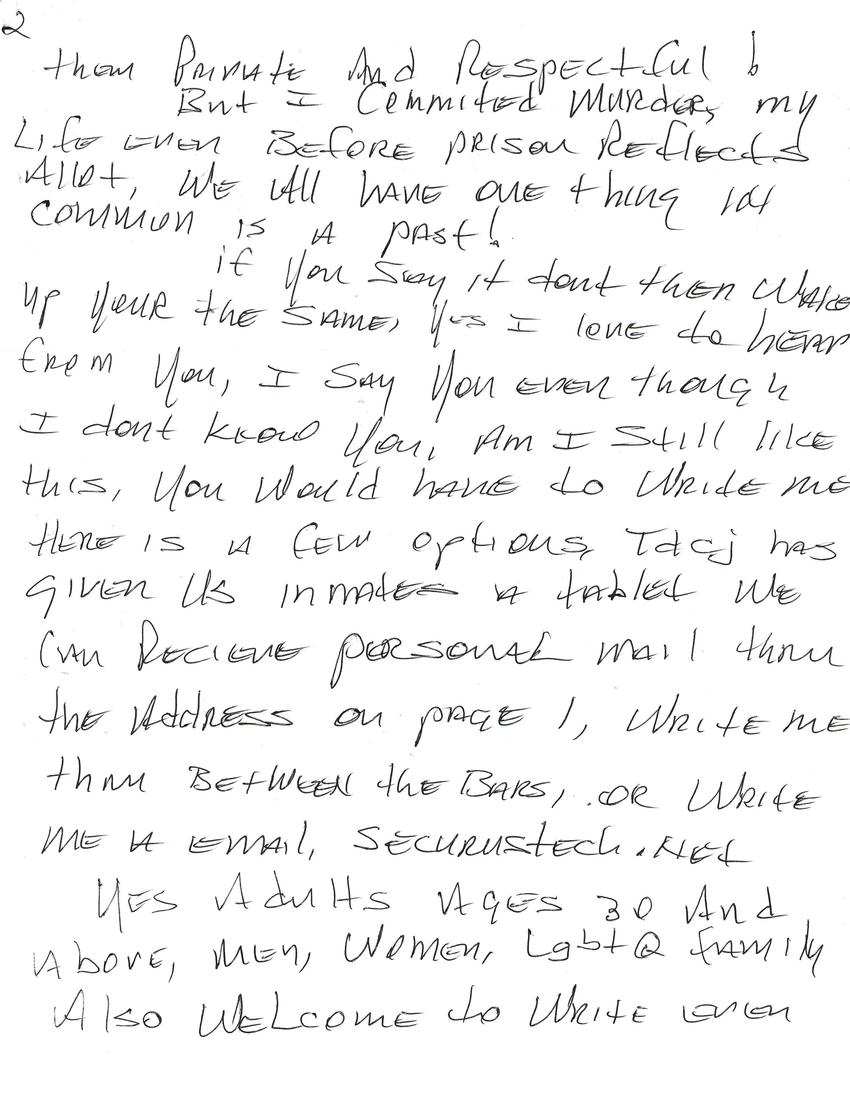 2
them Private And Respectful!
But I Cemmited Murder, my
Life even Before prison Reflects
Allot, We All have one thing in
common is A past!
if you Say it dont then Wake
up your the Same, Yes I love to hear
from You, I Say You even though
I dont know You, Am I Still like
this, You Would have to Write me
Here is A few options, Tdcj has
given Us inmates A tablet We
Can Recieve personal mail thru
the Address on page 1, Write me
thru Between the Bars, or Write
me A email, Securustech.Net
Yes Adults Ages 30 And
Above, Men, Women, LgbtQ family
Also Welcome to Write even